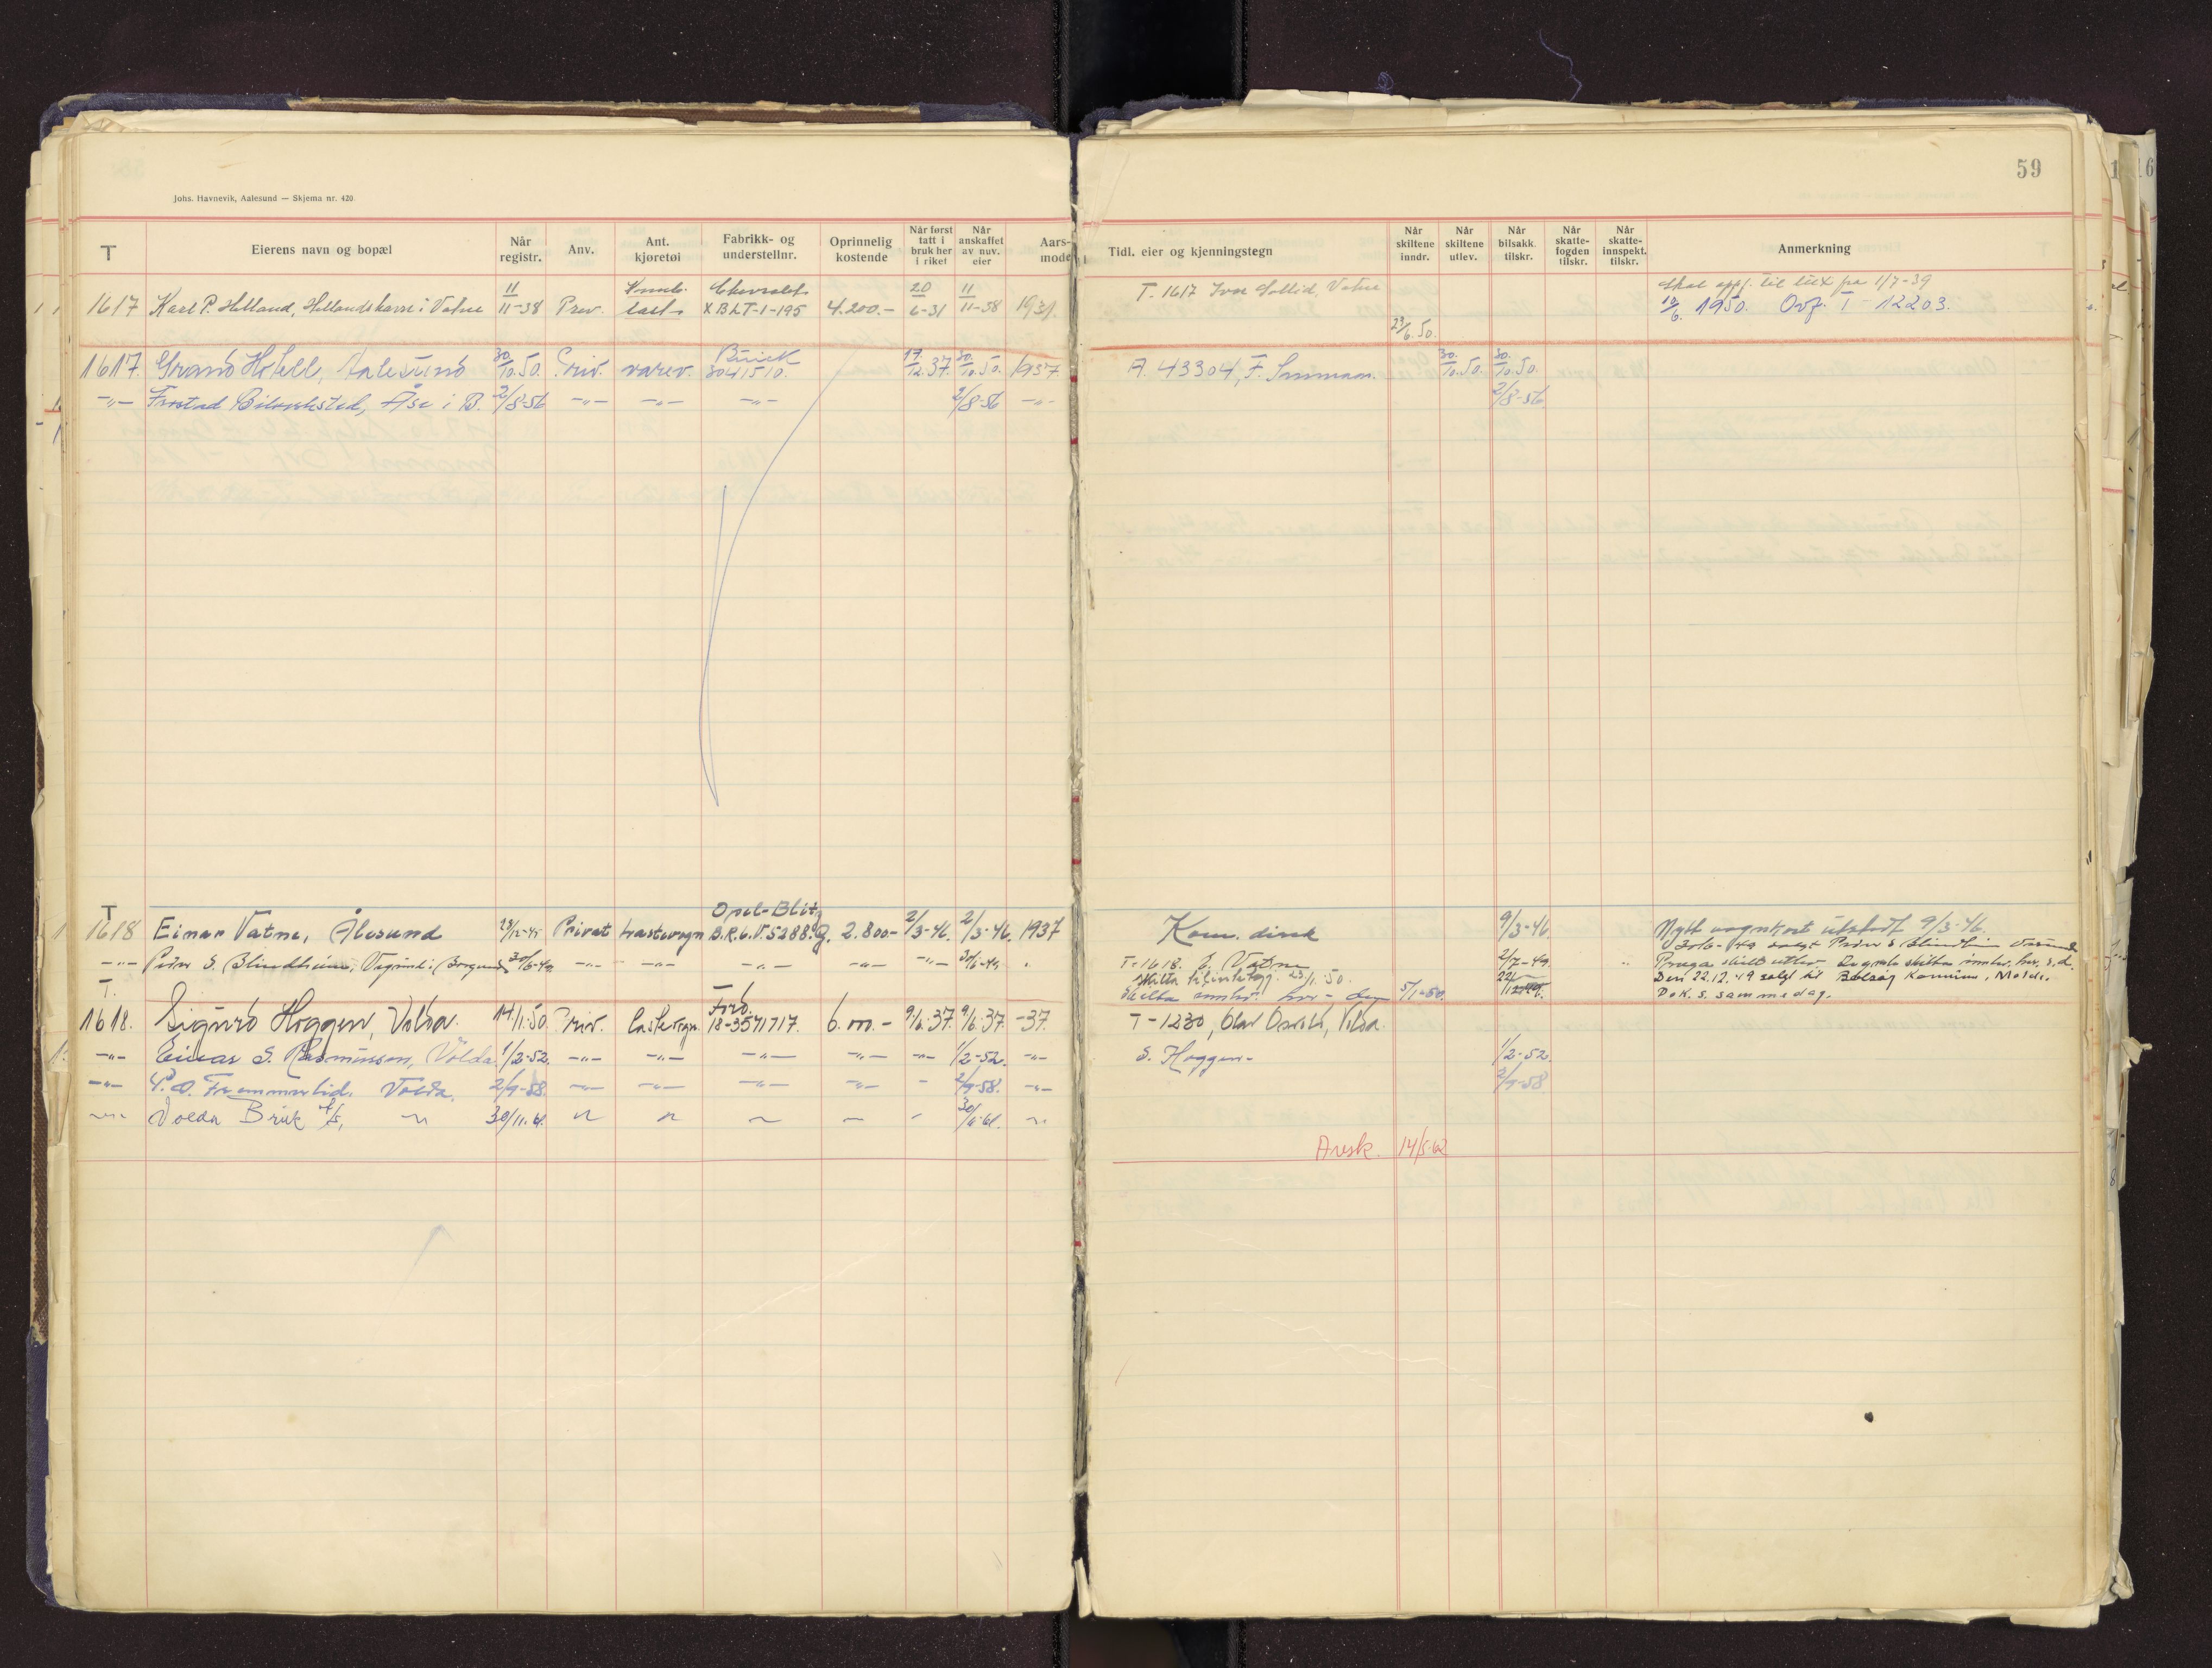 59
Johs. Havnevik, Aalesund — Skjema nr. 420
T Eierens navn og bopæl Når registr. Anv. Ant. kjøretøi Fabrikk- og understellnr. Oprinnelig kostende Når først tatt i bruk her i riket Når anskaffet av nuv. eier Aars- mode
Tidl. eier og kjenningstegn Når skiltene inndr. Når skiltene utlev. Når bilsakk. tilskr. Når skatte- fogden tilskr. Når skatte- innspekt. tilskr. Anmerkning
Komb. Chevrolet til 1/7-39
1617 Karl P. Helland, Hellandshavn i Vatne 11/11-38 Priv. last XBLT-1-195 4.200.- 20/6-31 11/11-38 1931. T-1617 Vatne 10/6. 1950. Ovf. T-12203.
23/6.50.
1617. Grand Hotell, Aalesund 30/10.50. Priv. varev. Buick 3041510. 17/12.37. 30/10.50. 1937 A. 43304, F. 30/10.50. 30/10.50.
-"- Frostad Bilverksted, Åse i B. 2/8-56 -"- -"- -"- 2/8-56 -"- 2/8-56
T 1618 Einar Vatne, Ålesund Privat Lastevogn Opel-Blitz B.R.6.V.5288.G. 2.800.- 2/3-46. 2/3-46. 1937 Kom. dirck 9/3-46. Nytt vognkort utstedt 9/3-46.
30/6-49 solgt Peder S Blindheim
-"- Peder S. Blindheim, i Borgund 30/6-49 -"- -"- -"- -"- -"- 30/6-49 T-1618. E. Vatne 2/7-49. skilt utlev. skilter innlev. her. s.d.
23/1.50. Den 22.12.49 solgt til Bolsøy Kommune, Molde.
5/1-50. Dok. s. samme dag.
T. 1618. Sigurd Hoggen, Volda. 14/11.50. Priv. lastevogn Ford. 18-3571717. 6.000.- 9/6.37. 9/6.37. -37. T-1230, Olav Osvold, Volda.
-"- Einar S. Rasmussen, Volda 1/2-52. -"- -"- -"- -"- -"- 1/2-52. -"- S. Hoggen- 1/2-52.
-"- P.O. Frammerlid. Volda. 2/9-58. -"- -"- -"- -"- - 2/9-58. -"- 2/9-58
-"- Volda Bruk A/S, -"- 30/11.61. 30/11-61.
Avsk. 14/5-62